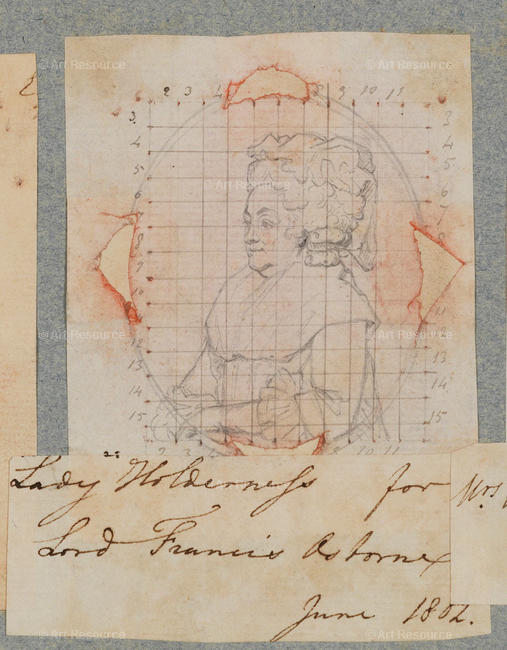 2 3 4 8 9 10 11
3 3
4 4
5 5
6 6
7 7
8 8
9 9
10
11 11
12 12
13 13
14 14
15 15
2 3 4 8 9 10 11
25
Lady Holderness for
Mrs
Lord Francis Osborne
June 1802.
© Art Resource
© Art Resource
© Art Resource
© Art Resource
© Art Resource
© Art Resource
© Art Resource
© Art Resource
© Art Resource